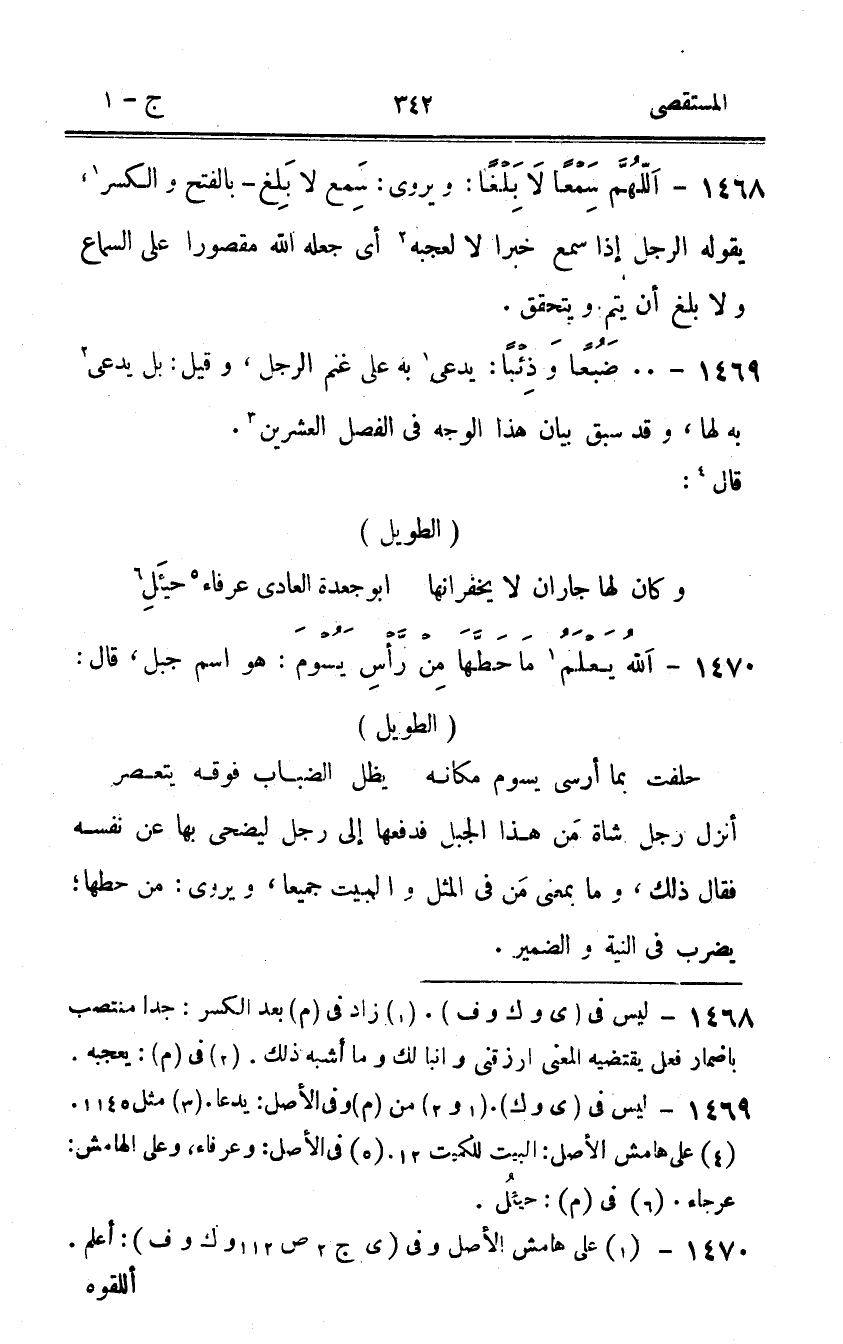 المستقصى ٣٤٢ ج - ١
١٤٦٨ - اَللّٰهُمَّ سَِمْعًا لَا بَِلْغًا: و يروى: سَِمع لا بَِلغ - بالفتح و الكسر١،
يقوله الرجل إذا سمع خبرا لا لعجبه٢ أى جعله الله مقصورا على السماع
و لا بلغ أن يتم و يتحقق .
١٤٦٩ - .. ضَبُعًا وَ ذِئْبًا: يدعى١ به على غنم الرجل، و قيل: بل يدعى٢
به لها، و قد سبق بيان هذا الوجه فى الفصل العشرين٣ .
قال٤ :
( الطويل )
و كان لها جاران لا يخفرانها ابو جعدة العادى عرفاء٥ حيَئلِ٦
١٤٧٠ - اَللهُ يَعْلَمُ١ مَا حَطَّهَا مِنْ رَّأْسِ يَسُوْمَ : هو اسم جبل، قال:
( الطويل )
حلفت بما أرسى يسوم مكانه يظل الضباب فوقه يتعصر
أنزل رجل شاة مَن هذا الجبل فدفعها إلى رجل ليضحى بها عن نفسه
فقال ذلك، و ما بمعنى مَن فى المثل و البيت جميعا، و يروى: من حطها؛
يضرب فى النية و الضمير .
١٤٦٨ - ليس فى (ى و ك و ف) . (١) زاد فى (م) بعد الكسر : جدا منتصب
باضمار فعل يقتضيه المعنى ارزقنى و انبا لك و ما أشبه ذلك . (٢) فى (م): يعجبه .
١٤٦٩ - ليس فى (ى و ك). (١ و ٢) من (م) و فى الأصل: يدعا. (٣) مثل ١١٤٥.
(٤) على هامش الأصل: البيت للكميت ١٢. (٥) فى الأصل: و عرفاء، وعلى الهامش:
عرجاء . (٦) فى (م) : حيئلُ .
١٤٧٠ - (١) على هامش الأصل و فى (ى ج ٢ ص ١١٢ و ك و ف): أعلم .
أللقوه